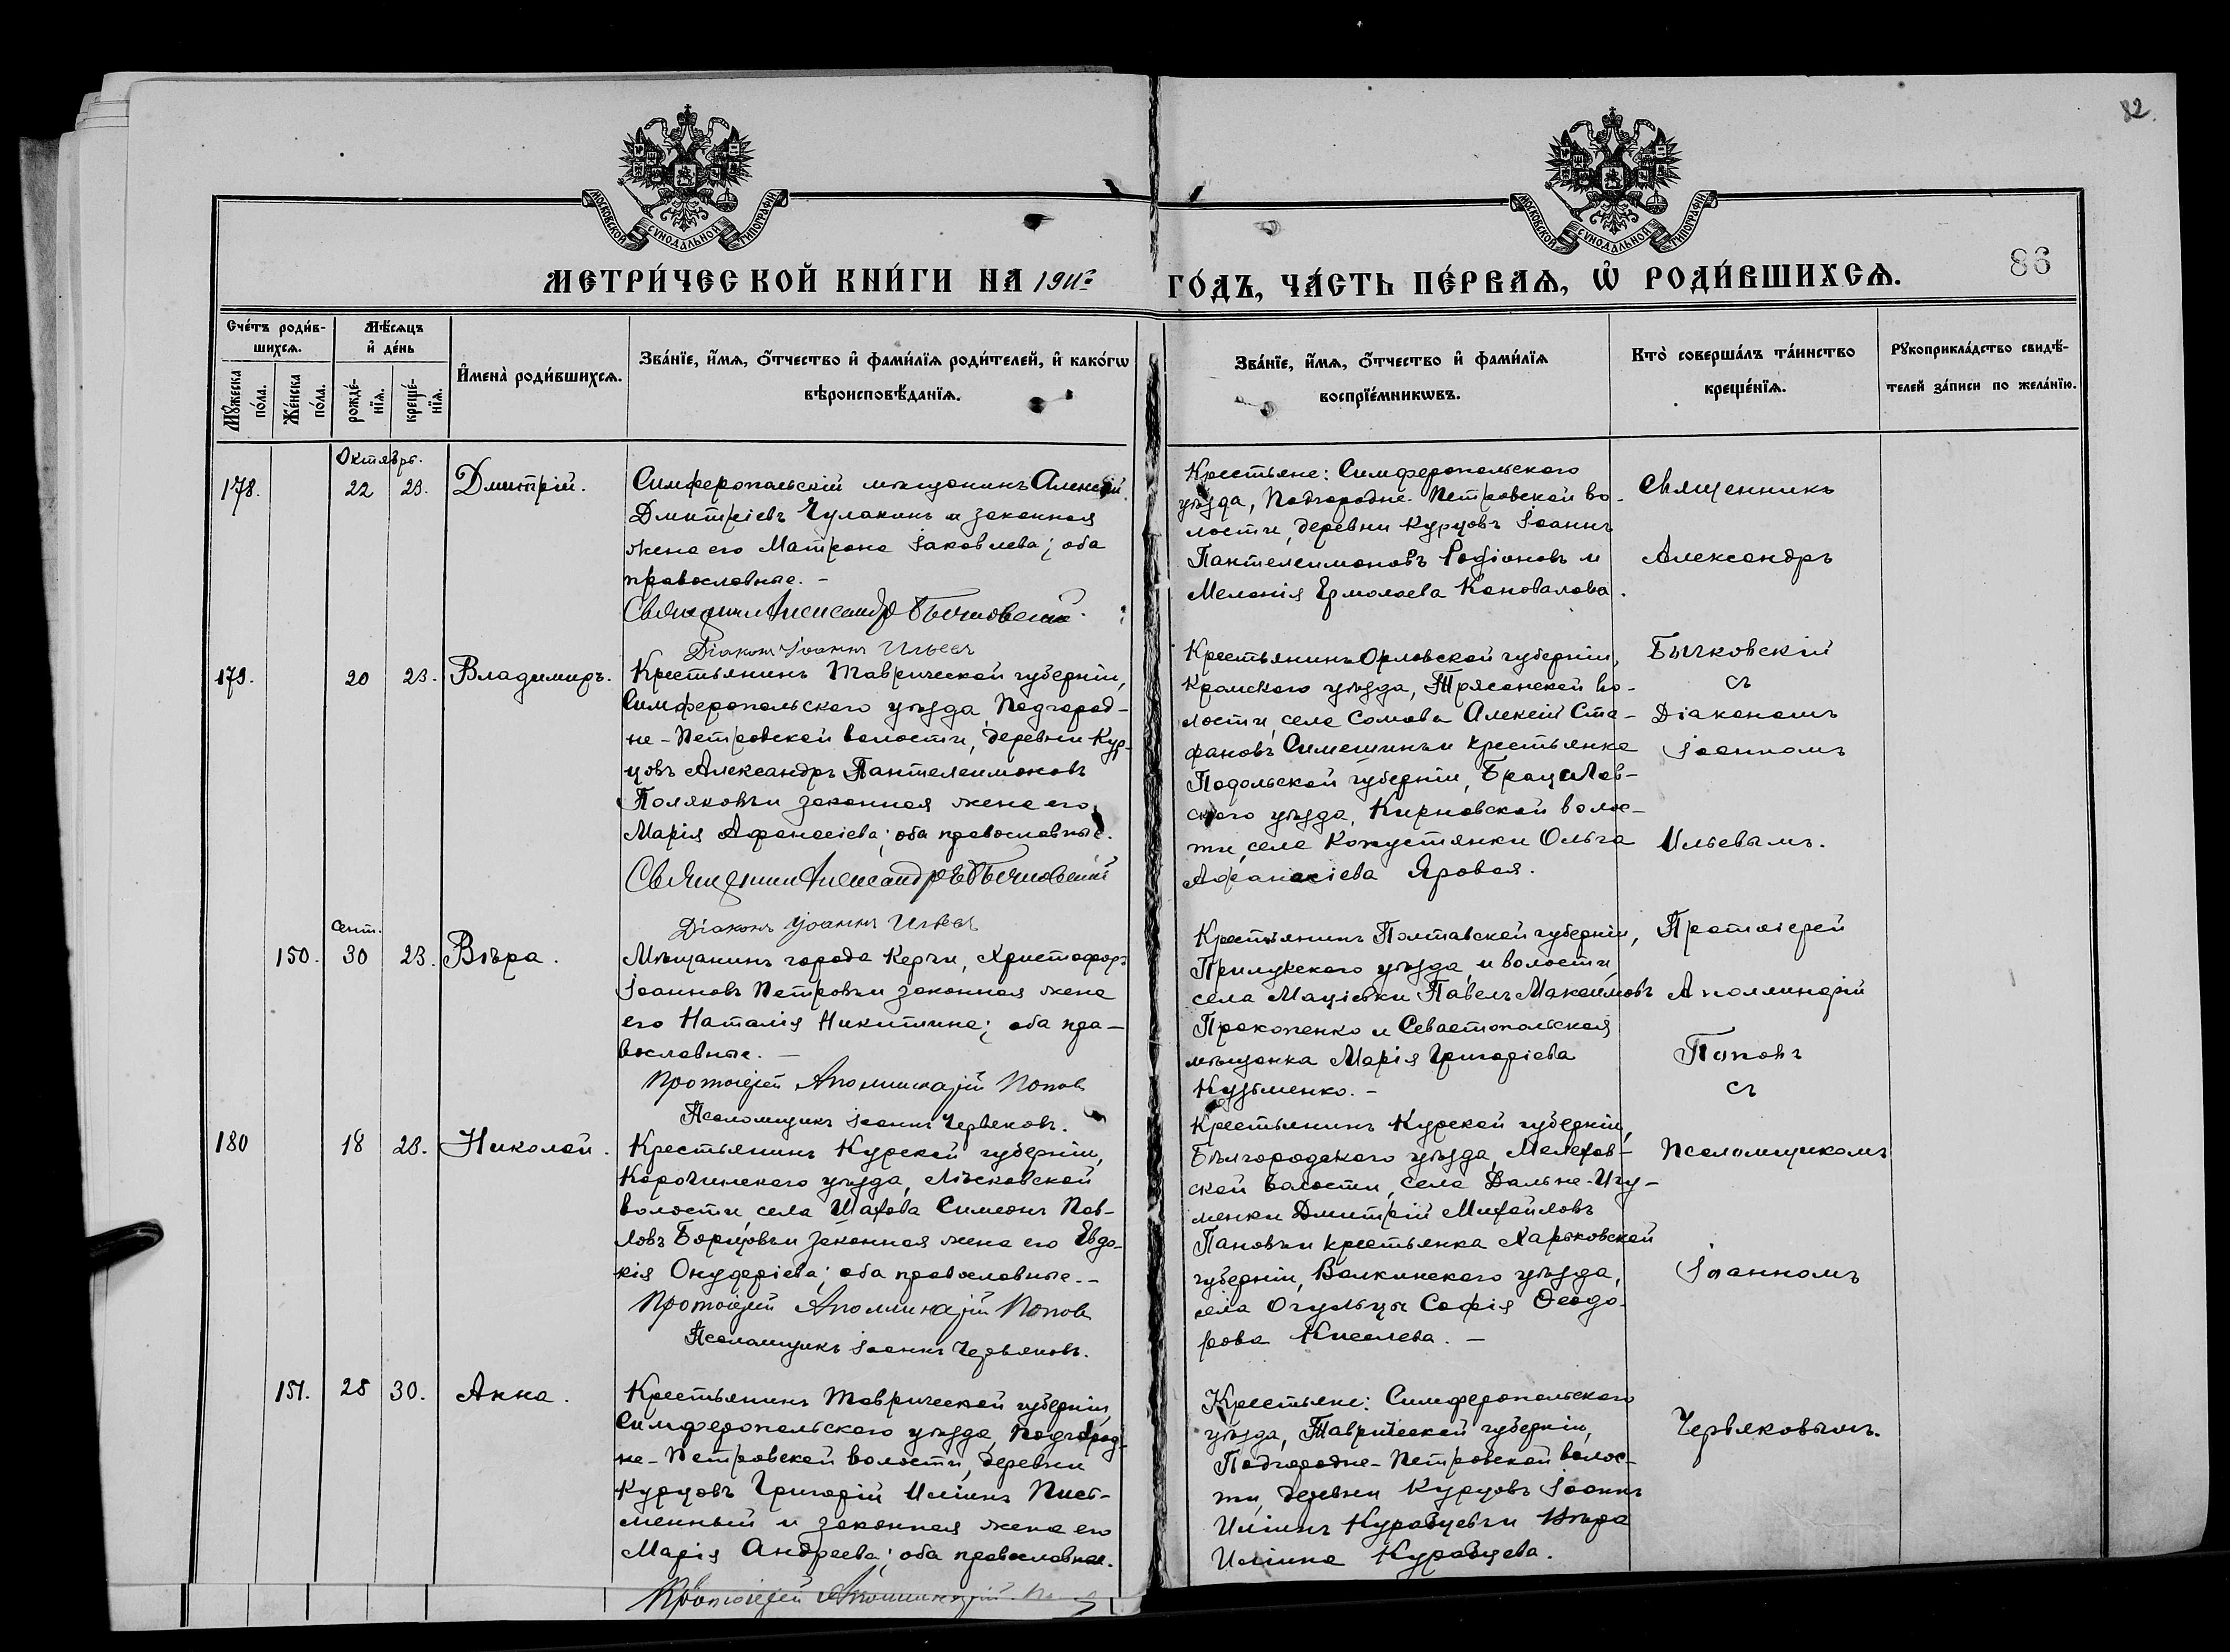 82.
МОСКОВСКОЙ СѴНОДАЛЬНОЙ ТИПОГРАФІИ
МОСКОВСКОЙ СѴНОДАЛЬНОЙ ТИПОГРАФІИ
86
МЕТРИ́ЧЕСКОЙ КНИ́ГИ НА 1911г.
ГО́ДЪ, ЧА́СТЬ ПЕ́РВАѦ, Ѽ РОДИ́ВШИХСѦ.
Сче́тъ роди́в-
шихсѧ.
Мꙋ́жеска по́ла.
Же́нска по́ла.
Мѣ́сѧцъ
и҆ де́нь
рожде́-нїѧ.
креще́-нїѧ.
И҆мена̀ роди́вшихсѧ.
Зва́нїе, и҆́мѧ, ѻ҆́тчество и҆ фами́лїѧ роди́телей, и҆ како́гѡ
вѣроисповѣ́данїѧ.
Зва́нїе, и҆́мѧ, ѻ҆́тчество и҆ фами́лїѧ
воспрїе́мникѡвъ.
Кто̀ соверша́лъ та́инство
креще́нїѧ.
Рꙋкоприкла́дство свидѣ́-
телей за́писи по жела́нїю.
Октябрь.
178.
22
23.
Дмитрій.
Симферопольскій мѣщанинъ Алексѣй
Дмитріевъ Чулакинъ и законная
жена его Матрона Іаковлева; оба
православные. -
Священникъ Александръ Бычковскій
Діаконъ Іоаннъ Ильевъ
Крестьяне: Симферопольского
уѣзда, Подгородне-Петровской во-
лости, деревни Курцовъ Іоаннъ
Пантелеимоновъ Родіоновъ и
Меланія Ермолаева Коновалова.
Священникъ
Александръ
179.
20
23.
Владимиръ.
Крестьянинъ Таврической губерніи,
Симферопольского уѣзда, Подгород-
не-Петровской волости, деревни Кур-
цовъ Александръ Пантелеимоновъ
Поляковъ и законная жена его
Марія Афанасіева; оба православные.
Священникъ Александръ Бычковскій
Діаконъ Іоаннъ Ильевъ
Крестьянинъ Орловской губерніи,
Кромского уѣзда, Трясонской во-
лости, села Сомова Алексѣй Сте-
фановъ Симешинъ и крестьянка
Подольской губерніи, Брацлав-
ского уѣзда, Кирновской волос-
ти, села Копустянки Ольга
Афанасіева Яровая.
Бычковскій
съ
Діакономъ
Іоанномъ
Ильевымъ.
150.
Сент.
30
23.
Вѣра.
Мѣщанинъ города Керчи, Христофоръ
Іоанновъ Петровъ и законная жена
его Наталія Никитина; оба пра-
вославные. -
Протоіерей Аполлинарій Поповъ
Псаломщикъ Іоаннъ Червяковъ.
Крестьянинъ Полтавской губерніи,
Прилукского уѣзда и волости,
села Маціевки Павелъ Максимовъ
Прокопенко и Севастопольская
мѣщанка Марія Григоріева
Кузьменко. -
Протоіерей
Аполлинарій
Поповъ
съ
180
18
23.
Николай.
Крестьянинъ Курской губерніи,
Корочинского уѣзда, Лѣсковской
волости, села Шахова Симеонъ Пав-
ловъ Борцовъ и законная жена его Евдо-
кія Онуфріева; оба православные. -
Протоіерей Аполлинарій Поповъ
Псаломщикъ Іоаннъ Червяковъ.
Крестьянинъ Курской губерніи,
Бѣлгородского уѣзда, Мелехов-
ской волости, села Дальне-Игу-
менки Дмитрій Михайловъ
Пановъ и крестьянка Харьковской
губерніи, Валкинского уѣзда,
села Огульцы Софія Ѳеодо-
рова Киселева. -
Псаломщикомъ
Іоанномъ
151.
28
30.
Анна.
Крестьянинъ Таврической губерніи,
Симферопольского уѣзда, Подгород-
не-Петровской волости, деревни
Курцовъ Григорій Иліинъ Пись-
менный и законная жена его
Марія Андреева; оба православные.
Протоіерей Аполлинарій
Крестьяне: Симферопольского
уѣзда, Таврической губерніи,
Подгородне-Петровской волос-
ти, деревни Курцовъ Іоаннъ
Иліинъ Куравцевъ и Вѣра
Иліина Куравцева.
Червяковымъ.